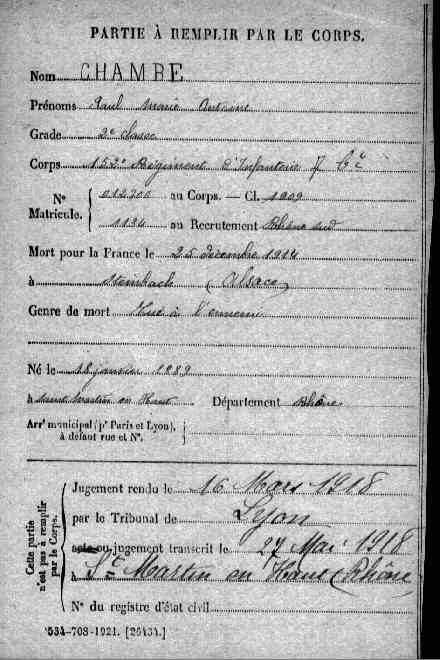 PARTIE À REMPLIR PAR LE CORPS.
Nom CHAMBE
Prénoms Paul Marie Antoine
Grade 2e classe
Corps 152e Régiment d'Infanterie 7 Cie
Nos Matricule. 012700 au Corps. — Cl. 1909
1124 au Recrutement Rhône sud
Mort pour la France le 25 décembre 1914
à Steinbach (Alsace)
Genre de mort Tué à l'ennemi
Né le 18 janvier 1889
à Saint Martin en Haut Département Rhône
Arrt municipal (pr Paris et Lyon),
à défaut rue et N°.
Cette partie
n'est pas à remplir
par le Corps.
Jugement rendu le 16 Mars 1918
par le Tribunal de Lyon
acte ou jugement transcrit le 27 Mai 1918
à St Martin en Haut (Rhône
N° du registre d'état civil
534-708-1921. [26434.]